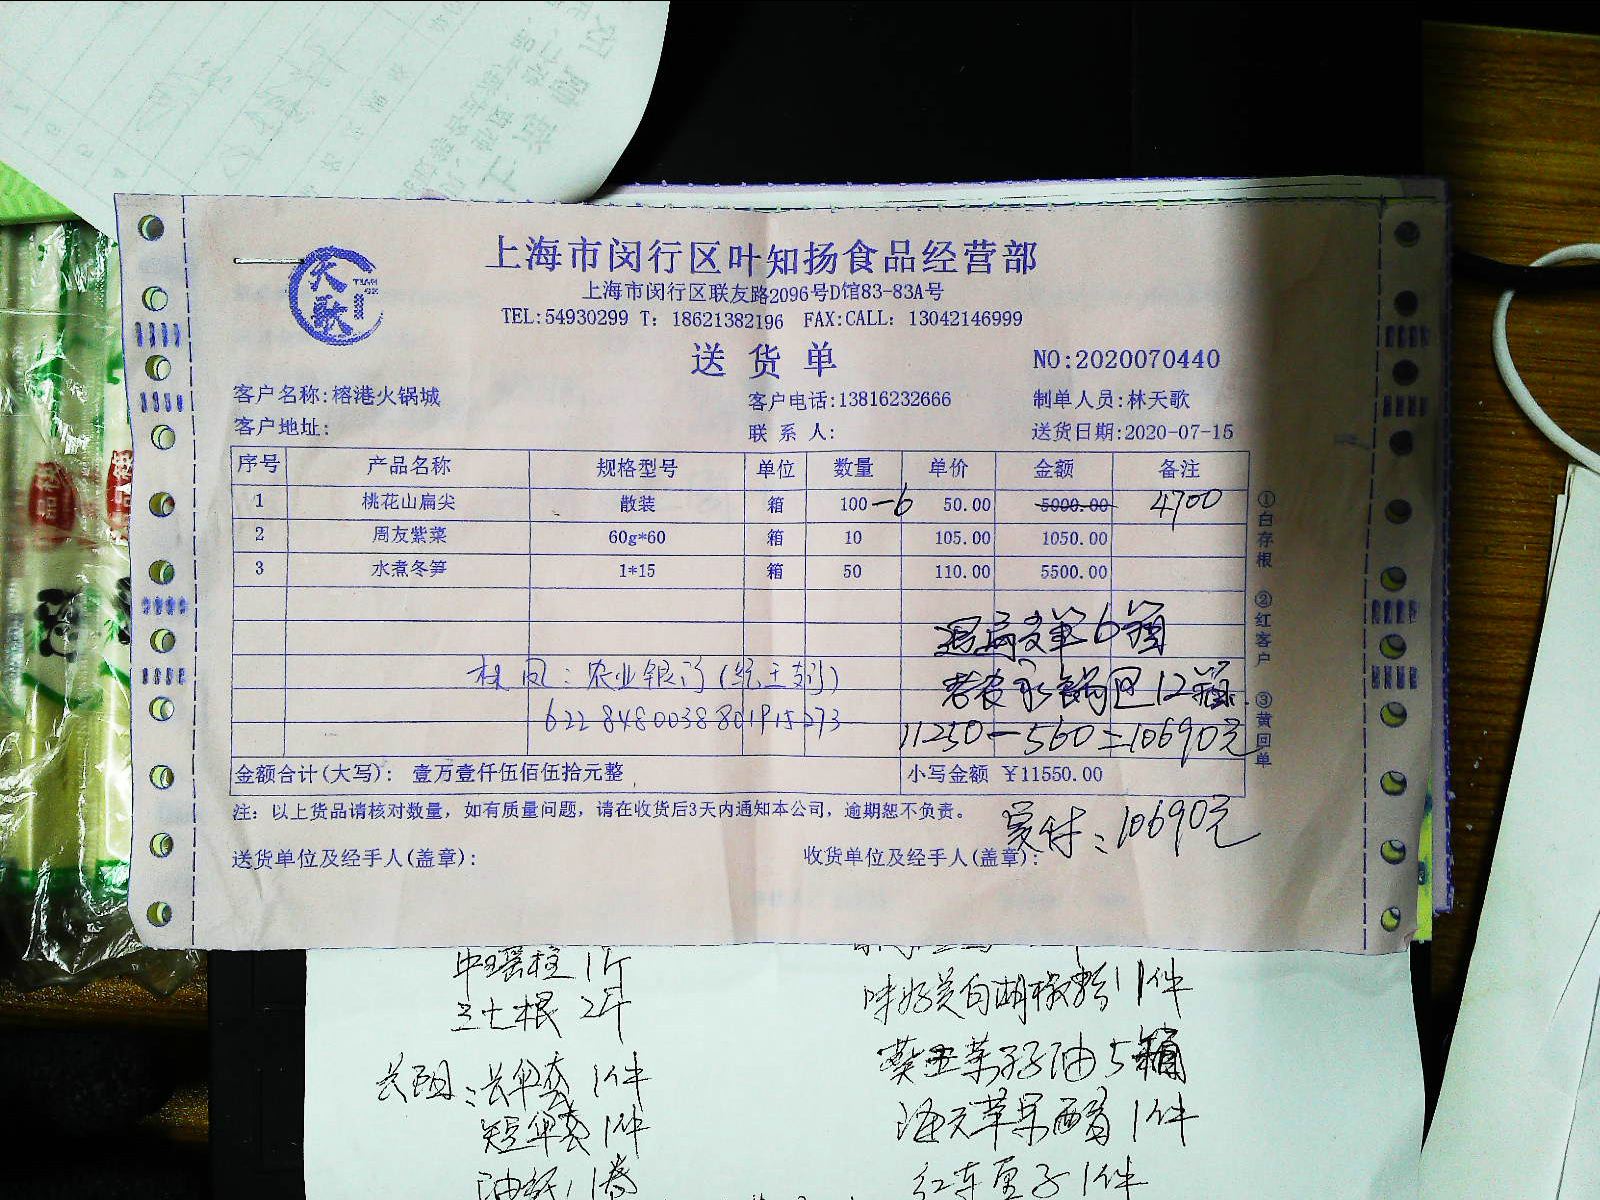 天歌
上海市闵行区叶知扬食品经营部
上海市闵行区联友路2096号D馆83-83A号
TEL:54930299 T: 18621382196 FAX:CALL: 13042146999
送货单
NO:2020070440
客户名称:榕港火锅城 客户电话:13816232666 制单人员:林天歌
客户地址: 联系人: 送货日期:2020-07-15
序号 产品名称 规格型号 单位 数量 单价 金额 备注
1 桃花山扁尖 散装 箱 100-6 50.00 5000.00 4700
2 周友紫菜 60g*60 箱 10 105.00 1050.00
3 水煮冬笋 1*15 箱 50 110.00 5500.00
6箱
12箱
农业银行
6228480038801915273
11250-560=10690元
金额合计(大写): 壹万壹仟伍佰伍拾元整 小写金额 ¥11550.00
注: 以上货品请核对数量, 如有质量问题, 请在收货后3天内通知本公司, 逾期恕不负责。
实付:10690元
送货单位及经手人(盖章): 收货单位及经手人(盖章):
①白存根 ②红客户 ③黄回单
中瑶柱 1斤
三七根 2斤
味好美白胡椒粉 1件
长伞套 1件
5箱
短伞套 1件
海天苹果醋 1件
油纸 1卷
红车厘子 1件